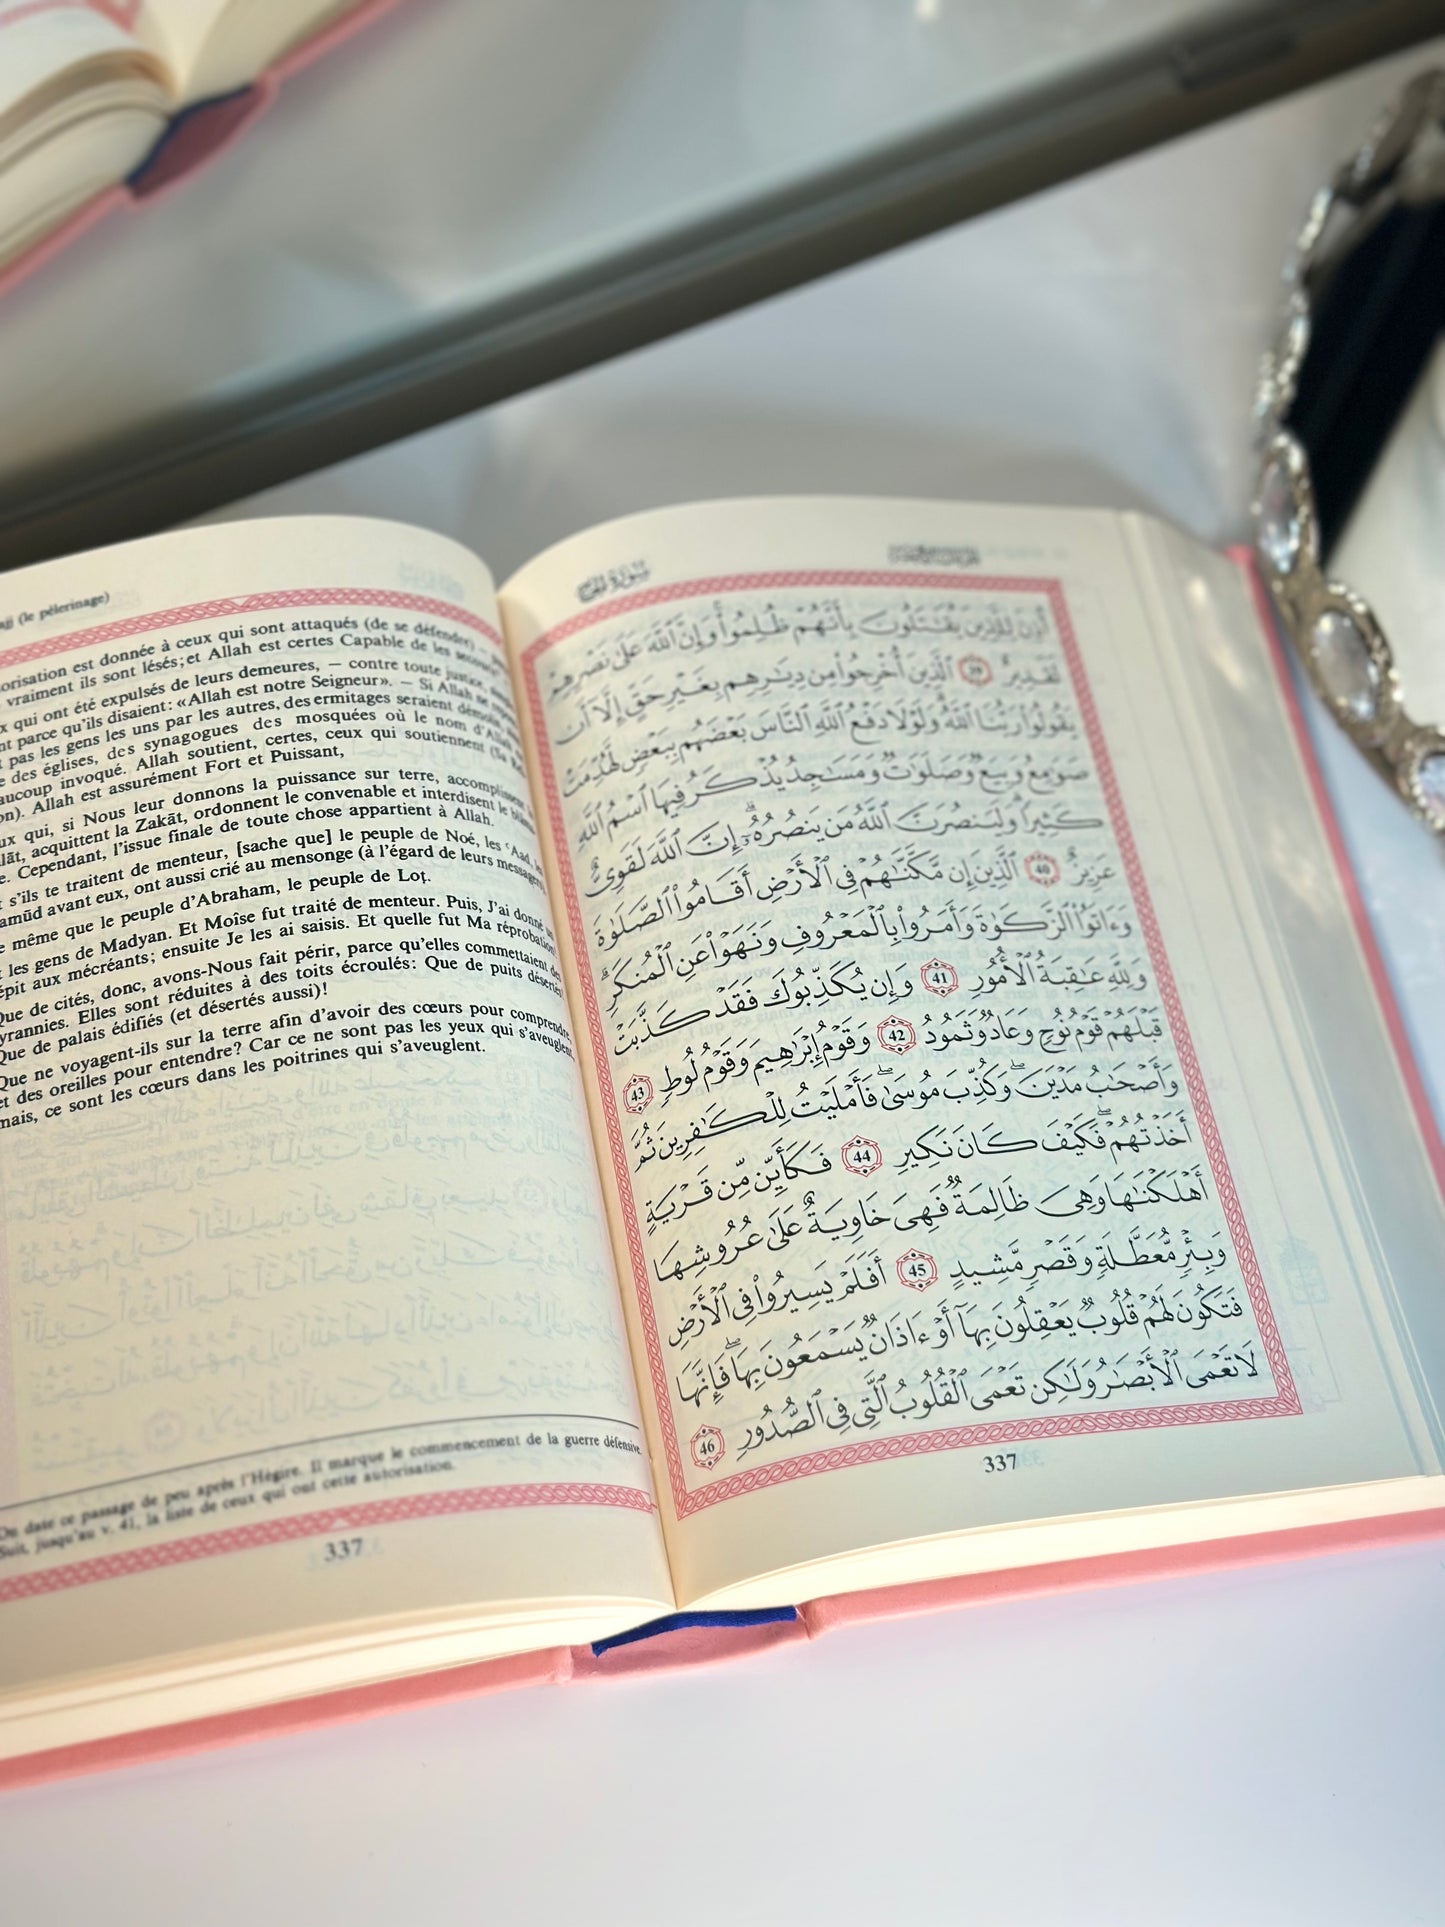 (le pèlerinage)
est donnée à ceux qui sont attaqués (de se défendre) —
vraiment ils sont lésés; et Allah est certes Capable de les secourir
qui ont été expulsés de leurs demeures, — contre toute justice,
parce qu'ils disaient: «Allah est notre Seigneur». — Si Allah ne
pas les gens les uns par les autres, des ermitages seraient démolis,
des églises, des synagogues des mosquées où le nom d'Allah
invoqué. Allah soutient, certes, ceux qui soutiennent (Sa
Allah est assurément Fort et Puissant,
qui, si Nous leur donnons la puissance sur terre, accomplissent
acquittent la Zakāt, ordonnent le convenable et interdisent le
Cependant, l'issue finale de toute chose appartient à Allah.
s'ils te traitent de menteur, [sache que] le peuple de Noé, les ʿAad, les
avant eux, ont aussi crié au mensonge (à l'égard de leurs messagers),
même que le peuple d'Abraham, le peuple de Loṭ.
les gens de Madyan. Et Moïse fut traité de menteur. Puis, J'ai donné un
aux mécréants; ensuite Je les ai saisis. Et quelle fut Ma réprobation
Que de cités, donc, avons-Nous fait périr, parce qu'elles commettaient des
tyrannies. Elles sont réduites à des toits écroulés: Que de puits désertés!
Que de palais édifiés (et désertés aussi)!
Que ne voyagent-ils sur la terre afin d'avoir des cœurs pour comprendre,
et des oreilles pour entendre? Car ce ne sont pas les yeux qui s'aveuglent,
mais, ce sont les cœurs dans les poitrines qui s'aveuglent.
On date ce passage de peu après l'Hégire. Il marque le commencement de la guerre défensive.
Suit, jusqu'au v. 41, la liste de ceux qui ont cette autorisation.
337
سُورَةُ الحَجِّ
أُذِنَ لِلَّذِينَ يُقَٰتَلُونَ بِأَنَّهُمْ ظُلِمُوا۟ وَإِنَّ ٱللَّهَ عَلَىٰ نَصْرِهِمْ
لَقَدِيرٌ 39 ٱلَّذِينَ أُخْرِجُوا۟ مِن دِيَٰرِهِم بِغَيْرِ حَقٍّ إِلَّآ أَن
يَقُولُوا۟ رَبُّنَا ٱللَّهُ وَلَوْلَا دَفْعُ ٱللَّهِ ٱلنَّاسَ بَعْضَهُم بِبَعْضٍ لَّهُدِّمَتْ
صَوَٰمِعُ وَبِيَعٌ وَصَلَوَٰتٌ وَمَسَٰجِدُ يُذْكَرُ فِيهَا ٱسْمُ ٱللَّهِ
كَثِيرًا وَلَيَنصُرَنَّ ٱللَّهُ مَن يَنصُرُهُۥٓ إِنَّ ٱللَّهَ لَقَوِىٌّ
عَزِيزٌ 40 ٱلَّذِينَ إِن مَّكَّنَّٰهُمْ فِى ٱلْأَرْضِ أَقَامُوا۟ ٱلصَّلَوٰةَ
وَءَاتَوُا۟ ٱلزَّكَوٰةَ وَأَمَرُوا۟ بِٱلْمَعْرُوفِ وَنَهَوْا۟ عَنِ ٱلْمُنكَرِ
وَلِلَّهِ عَٰقِبَةُ ٱلْأُمُورِ 41 وَإِن يُكَذِّبُوكَ فَقَدْ كَذَّبَتْ
قَبْلَهُمْ قَوْمُ نُوحٍ وَعَادٌ وَثَمُودُ 42 وَقَوْمُ إِبْرَٰهِيمَ وَقَوْمُ لُوطٍ 43
وَأَصْحَٰبُ مَدْيَنَ وَكُذِّبَ مُوسَىٰ فَأَمْلَيْتُ لِلْكَٰفِرِينَ ثُمَّ
أَخَذْتُهُمْ فَكَيْفَ كَانَ نَكِيرِ 44 فَكَأَيِّن مِّن قَرْيَةٍ
أَهْلَكْنَٰهَا وَهِىَ ظَالِمَةٌ فَهِىَ خَاوِيَةٌ عَلَىٰ عُرُوشِهَا
وَبِئْرٍ مُّعَطَّلَةٍ وَقَصْرٍ مَّشِيدٍ 45 أَفَلَمْ يَسِيرُوا۟ فِى ٱلْأَرْضِ
فَتَكُونَ لَهُمْ قُلُوبٌ يَعْقِلُونَ بِهَآ أَوْ ءَاذَانٌ يَسْمَعُونَ بِهَا فَإِنَّهَا
لَا تَعْمَى ٱلْأَبْصَٰرُ وَلَٰكِن تَعْمَى ٱلْقُلُوبُ ٱلَّتِى فِى ٱلصُّدُورِ 46
337